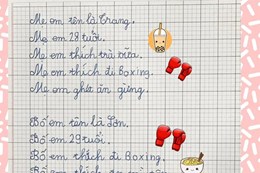 Mẹ em tên là Trang.
Mẹ em 28 tuổi.
Mẹ em thích trà sữa.
Mẹ em thích đi Boxing.
Mẹ em ghét ăn gừng.
Bố em tên là Sơn.
Bố em 29 tuổi.
Bố em thích đi Boxing.
Bố em thích